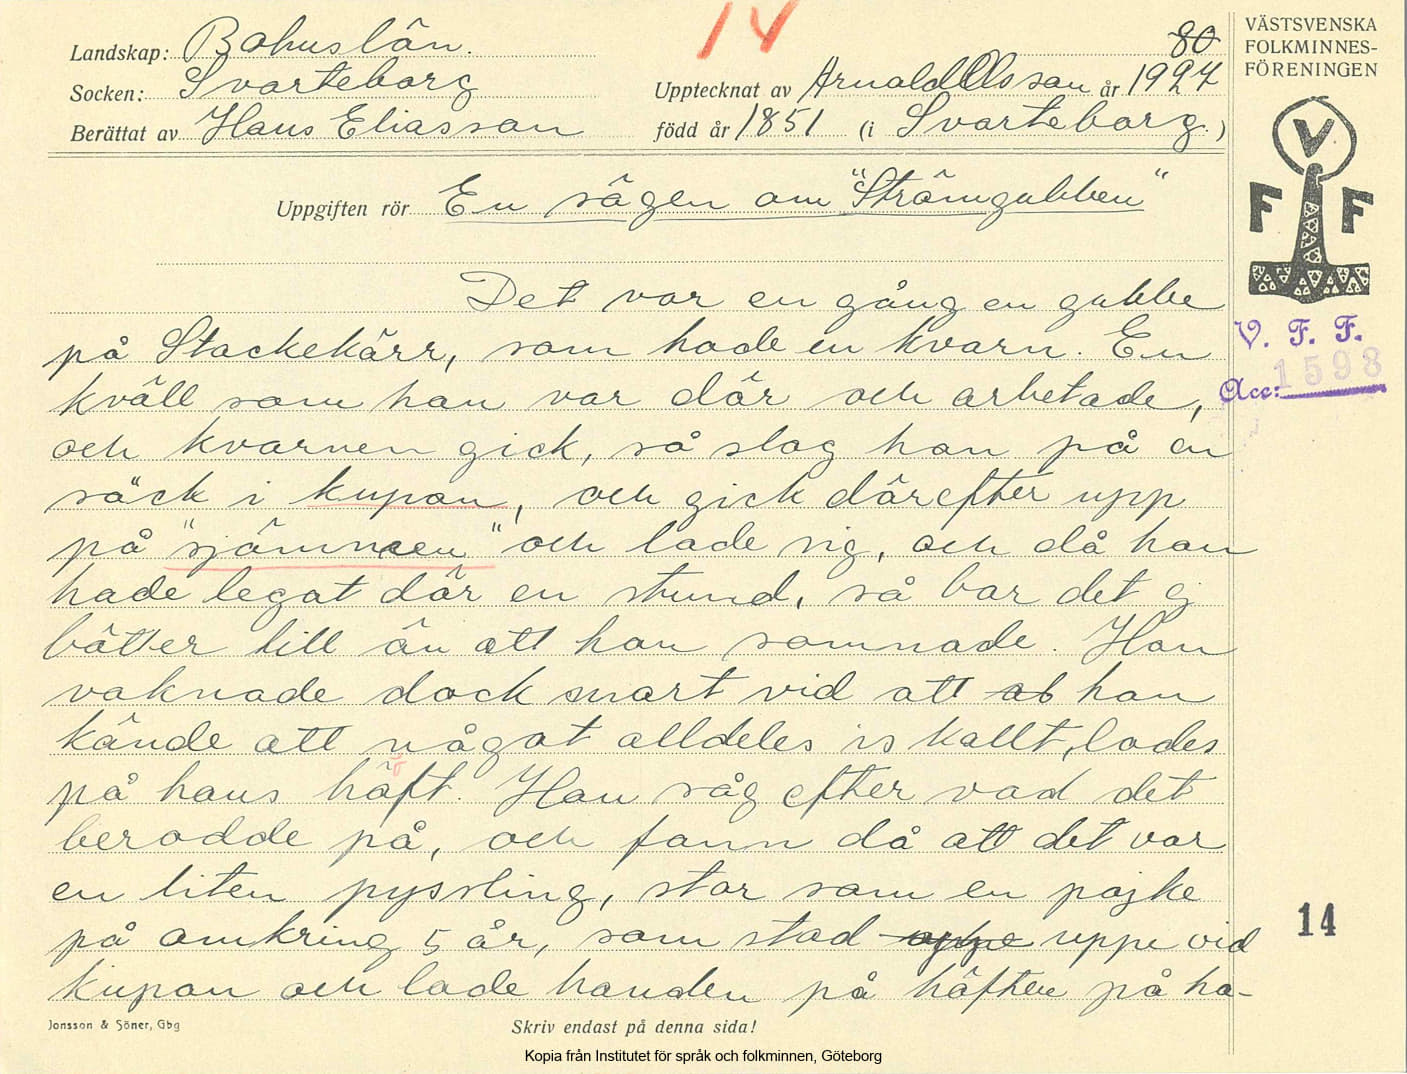 14
80
Landskap: Bohuslän.
Socken: Svarteborg
Upptecknat av Arnold Olsson år 1927
Berättat av Hans Eliasson född år 1851 (i Svarteborg.)
Uppgiften rör En sägen om "Strömgubben"
VÄSTSVENSKA
FOLKMINNES-
FÖRENINGEN
V
F F
V. F. F.
Acc: 1598
Det var en gång en gubbe
på Stackekärr, som hade en kvarn. En
kväll som han var där och arbetade,
och kvarnen gick, så slog han på en
säck i kupan, och gick därefter upp
på "sjömneen" och lade sig, och då han
hade legat där en stund, så bar det ej
bätter till än att han somnade. Han
vaknade dock snart vid att ab han
kände att något alldeles is kallt, lades
på hans häft. Han såg efter vad det
berodde på, och fann då att det var
en liten pyssling, stor som en pojke
på omkring 5 år, som stod uppe vid
kupan och lade handen på häften på ha-
14
Jonsson & Söner, Gbg
Skriv endast på denna sida!
Kopia från Institutet för språk och folkminnen, Göteborg